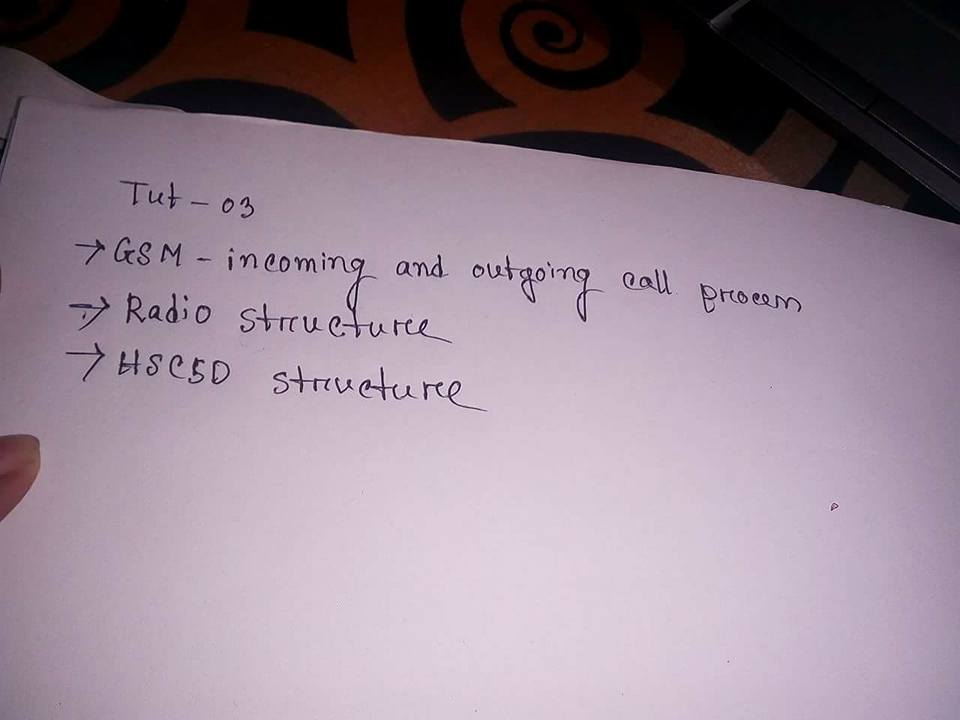 Tut - 03
→ GSM - incoming and outgoing call process
→ Radio structure
→ HSCSD structure